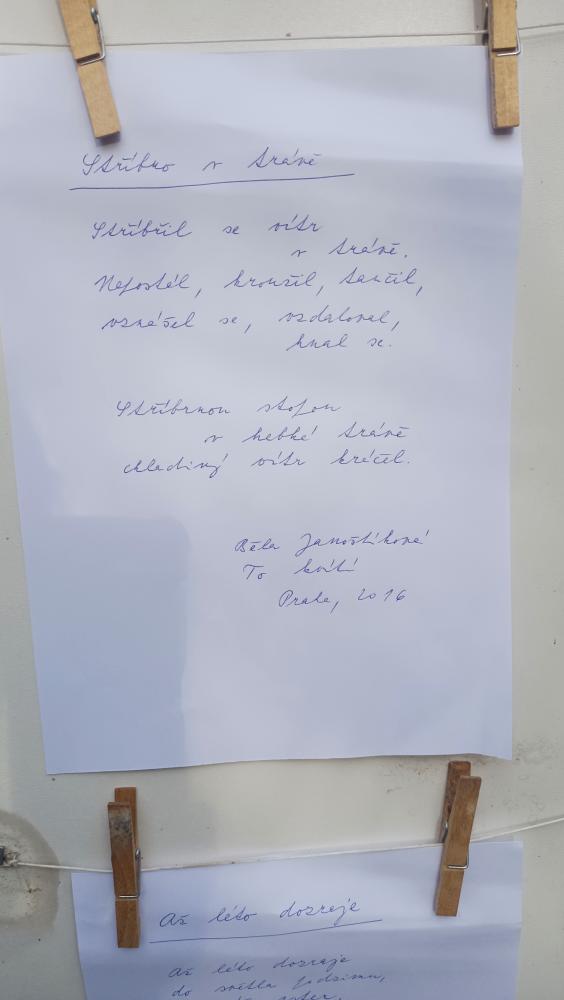 Stříbro v trávě
Stříbřil se vítr
v trávě.
Nepostál, kroužil, tančil,
vznášel se, vzdaloval,
hnal se.
Stříbrnou stopou
v hebké trávě
chladivý vítr kráčel.
Běla Janoštíková
To kvítí
Praha, 2016
Až léto dozraje
Až léto dozraje
do světla podzimu,